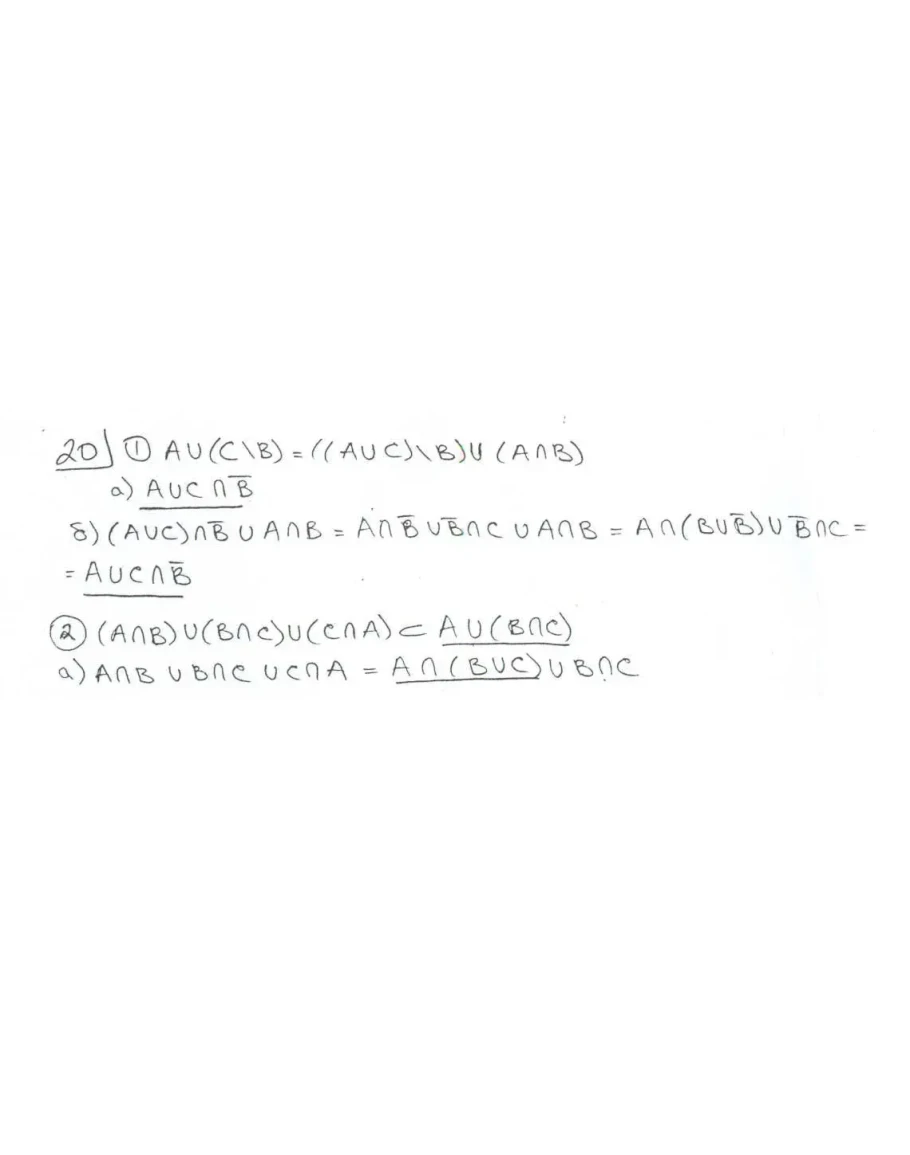 20) ① A∪(C\B) = ((A∪C)\B)∪(A∩B)
а) A∪C∩B̅
б) (A∪C)∩B̅ ∪ A∩B = A∩B̅ ∪ B̅∩C ∪ A∩B = A∩(B∪B̅)∪B̅∩C =
= A∪C∩B̅
② (A∩B)∪(B∩C)∪(C∩A) ⊂ A∪(B∩C)
а) A∩B ∪ B∩C ∪ C∩A = A∩(B∪C)∪B∩C